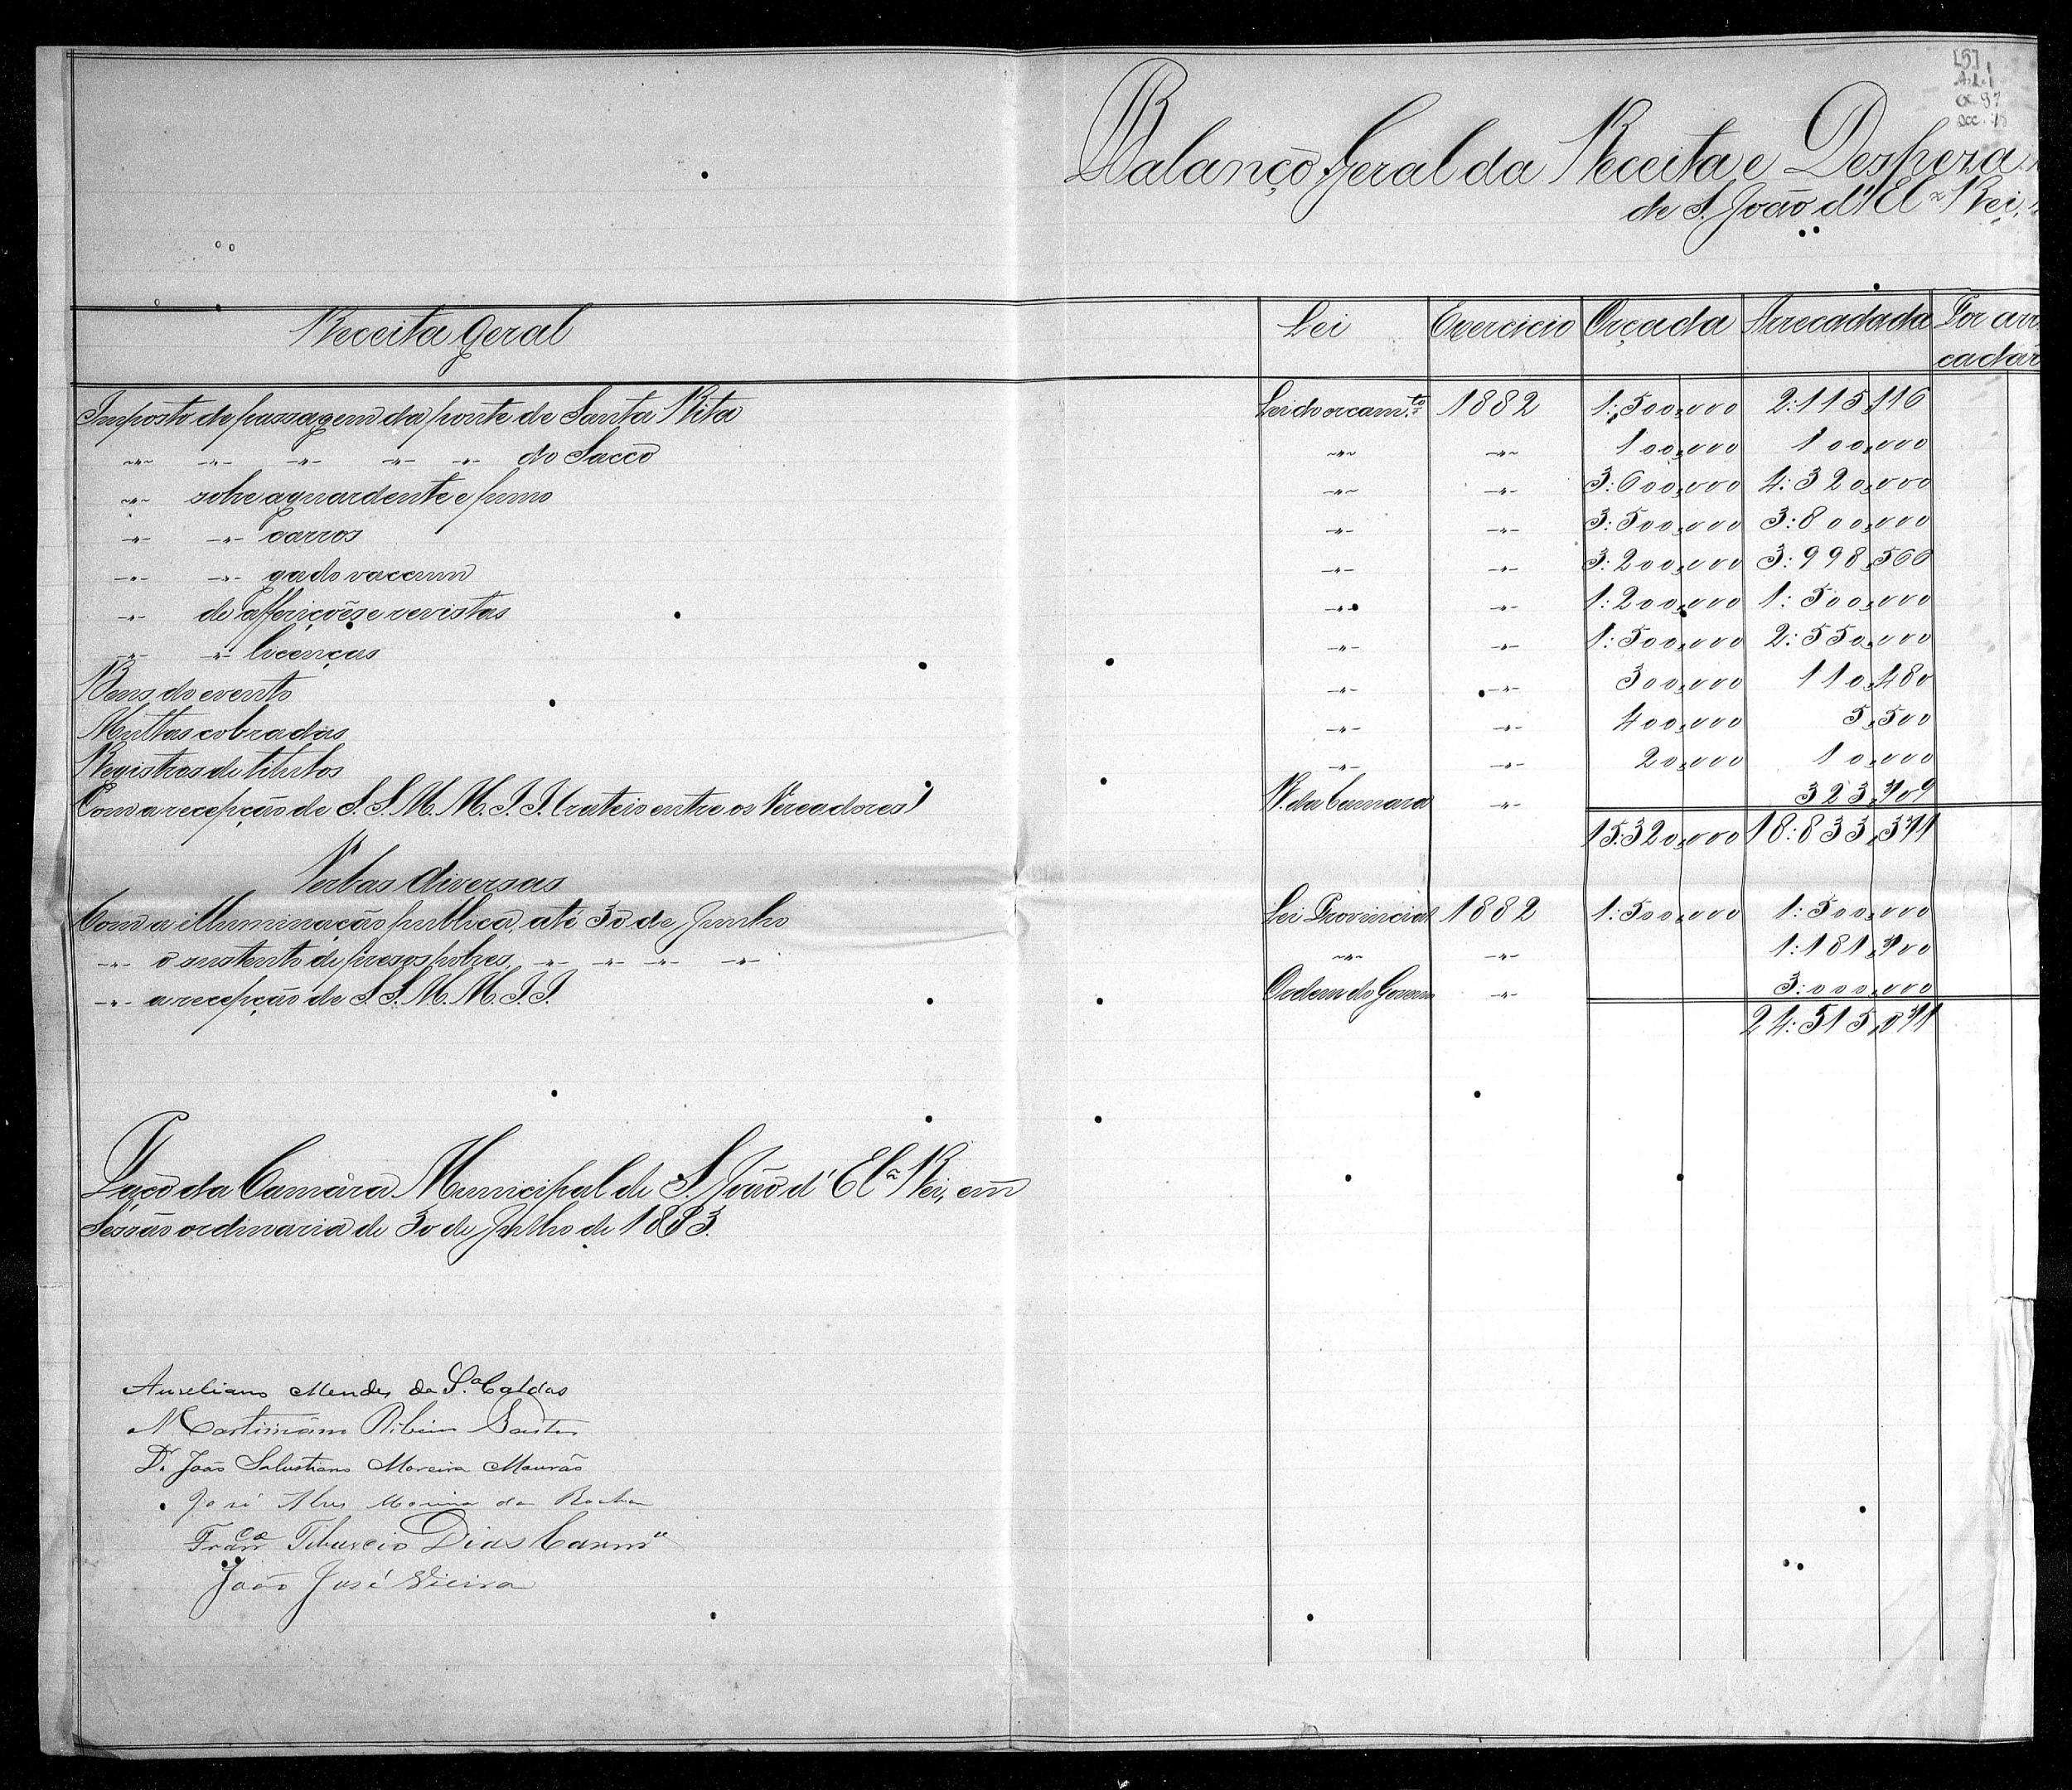 [5]
A.1.1
cx. 97
Balanço Geral da Receita e Despeza
de S. João d'El Rei,
Receita geral Lei Exercicio Orçada Arrecadada Por arre
cadar
Imposto de passagem da ponte de Santa Rita Lei do orcamto 1882 1:500,000 2:115,116
-"- -"- -"- -"- -"- do Sacco -"- -"- 100,000 100,000
-"- sobre aguardente e fumo -"- -"- 3:600,000 4:320,000
-"- -"- carros -"- -"- 3:500,000 3:800,000
-"- -"- gado vaccum -"- -"- 3:200,000 3:998,566
-"- de afferições e revistas -"- -"- 1:200,000 1:500,000
-"- -"- licenças -"- -"- 1:500,000 2:550,000
Bens do evento -"- -"- 300,000 110,480
Multas cobradas -"- -"- 400,000 5,500
Registros de titulos -"- -"- 20,000 10,000
Com a recepção de S.S. M.M. I.I. (rateio entre os Vereadores) R. da Camara -"- 323,709
15:320,000 18:833,371
Verbas diversas
Com a illuminação publica, até 30 de Junho Lei Provincial 1882 1:500,000 1:500,000
-"- o sustento de presos pobres, -"- -"- -"- -"- -"- -"- 1:181,700
-"- a recepção de S.S. M.M. I.I. Ordem do Governo -"- 3:000,000
24:515,071
Paço da Camara Municipal de S. João d'El Rei, em
Sessão ordinaria de 30 de Julho de 1883.
Aureliano Mendes da Sa Caldas
Martiniano Ribeiro Bastos
Dr João Salustiano Moreira Mourão
José Alves Moreira da Rocha
Franco Tiburcio Dias
João José Vieira